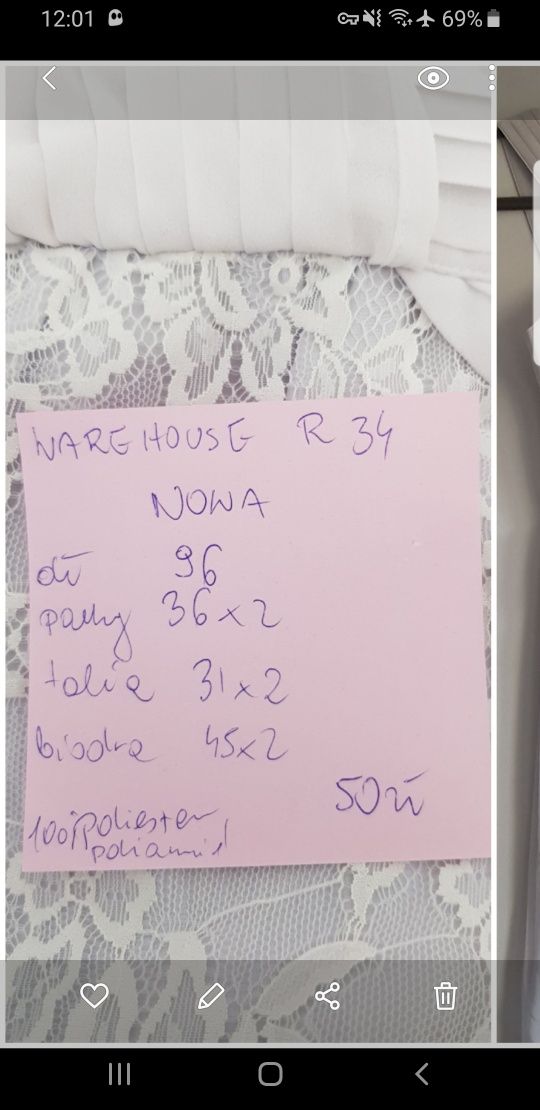 12:01 69%
WAREHOUSE R 34
NOWA
dł 96
pachy 36x2
talia 31x2
biodra 45x2
50zł
100% poliester
poliamid